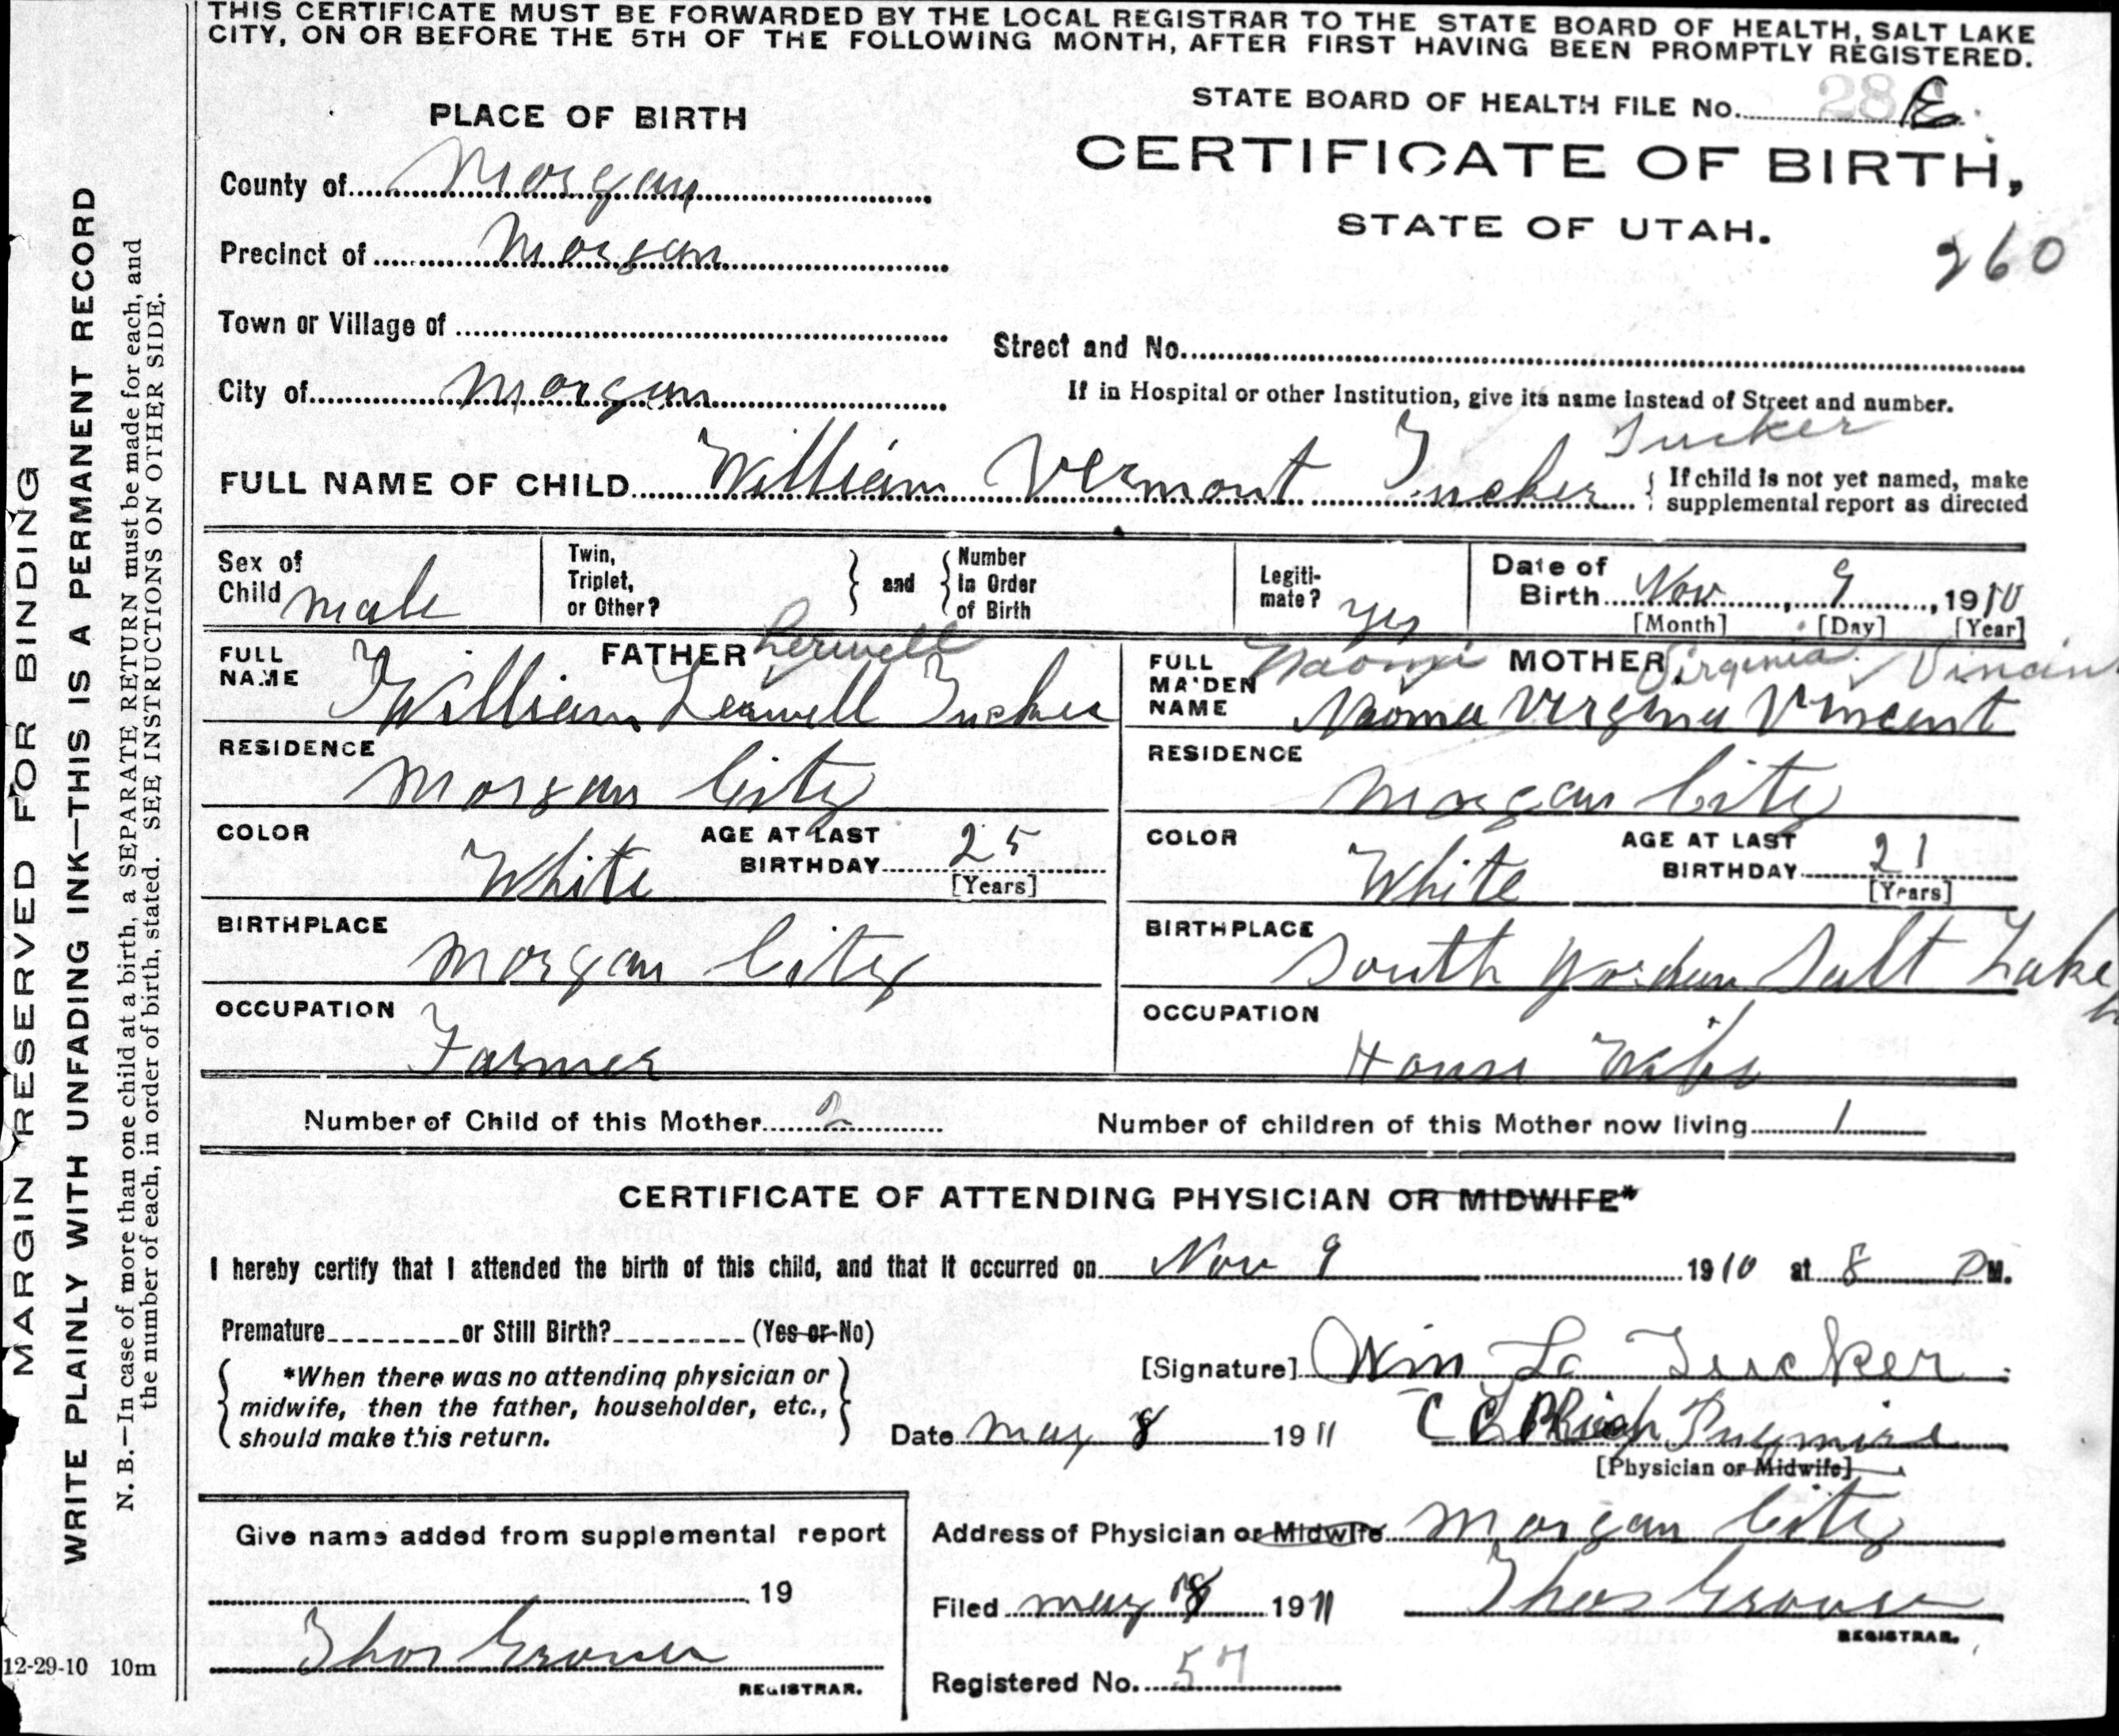 THIS CERTIFICATE MUST BE FORWARDED BY THE LOCAL REGISTRAR TO THE STATE BOARD OF HEALTH, SALT LAKE
CITY, ON OR BEFORE THE 5TH OF THE FOLLOWING MONTH, AFTER FIRST HAVING BEEN PROMPTLY REGISTERED.
STATE BOARD OF HEALTH FILE No. 28
PLACE OF BIRTH
CERTIFICATE OF BIRTH,
STATE OF UTAH.
260
County of Morgan
Precinct of Morgan
Town or Village of
Street and No.
City of Morgan
If in Hospital or other Institution, give its name instead of Street and number.
Tucker
FULL NAME OF CHILD William Vermont Tucker
If child is not yet named, make
supplemental report as directed
Sex of
Child male
Twin,
Triplet,
or Other?
and
Number
In Order
of Birth
Legiti-
mate? yes
Date of
Birth Nov 9, 1910
[Month] [Day] [Year]
FATHER Lerwell
FULL
NAME William Lerwell Tucker
RESIDENCE
Morgan City
COLOR
White
AGE AT LAST
BIRTHDAY 25
[Years]
BIRTHPLACE
Morgan City
OCCUPATION
Farmer
Naomi MOTHER Virginia Vincent
FULL
MAIDEN
NAME Naoma Virginia Vincent
RESIDENCE
Morgan City
COLOR
White
AGE AT LAST
BIRTHDAY 21
[Years]
BIRTHPLACE
South Jordan Salt Lake
OCCUPATION
House Wife
Number of Child of this Mother 2
Number of children of this Mother now living 1
CERTIFICATE OF ATTENDING PHYSICIAN OR MIDWIFE*
I hereby certify that I attended the birth of this child, and that it occurred on Nov 9 1910 at 8 P M.
Premature or Still Birth? (Yes or No)
*When there was no attending physician or
midwife, then the father, householder, etc.,
should make this return.
[Signature] Wm La Tucker
Date May 8 1911
[Physician or Midwife]
Address of Physician or Midwife Morgan City
Filed May 18 1911 Thos Grover
REGISTRAR.
Registered No. 57
Give name added from supplemental report
19
Thos Grover
REGISTRAR.
12-29-10 10m
MARGIN RESERVED FOR BINDING
WRITE PLAINLY WITH UNFADING INK—THIS IS A PERMANENT RECORD
N. B.—In case of more than one child at a birth, a SEPARATE RETURN must be made for each, and
the number of each, in order of birth, stated. SEE INSTRUCTIONS ON OTHER SIDE.